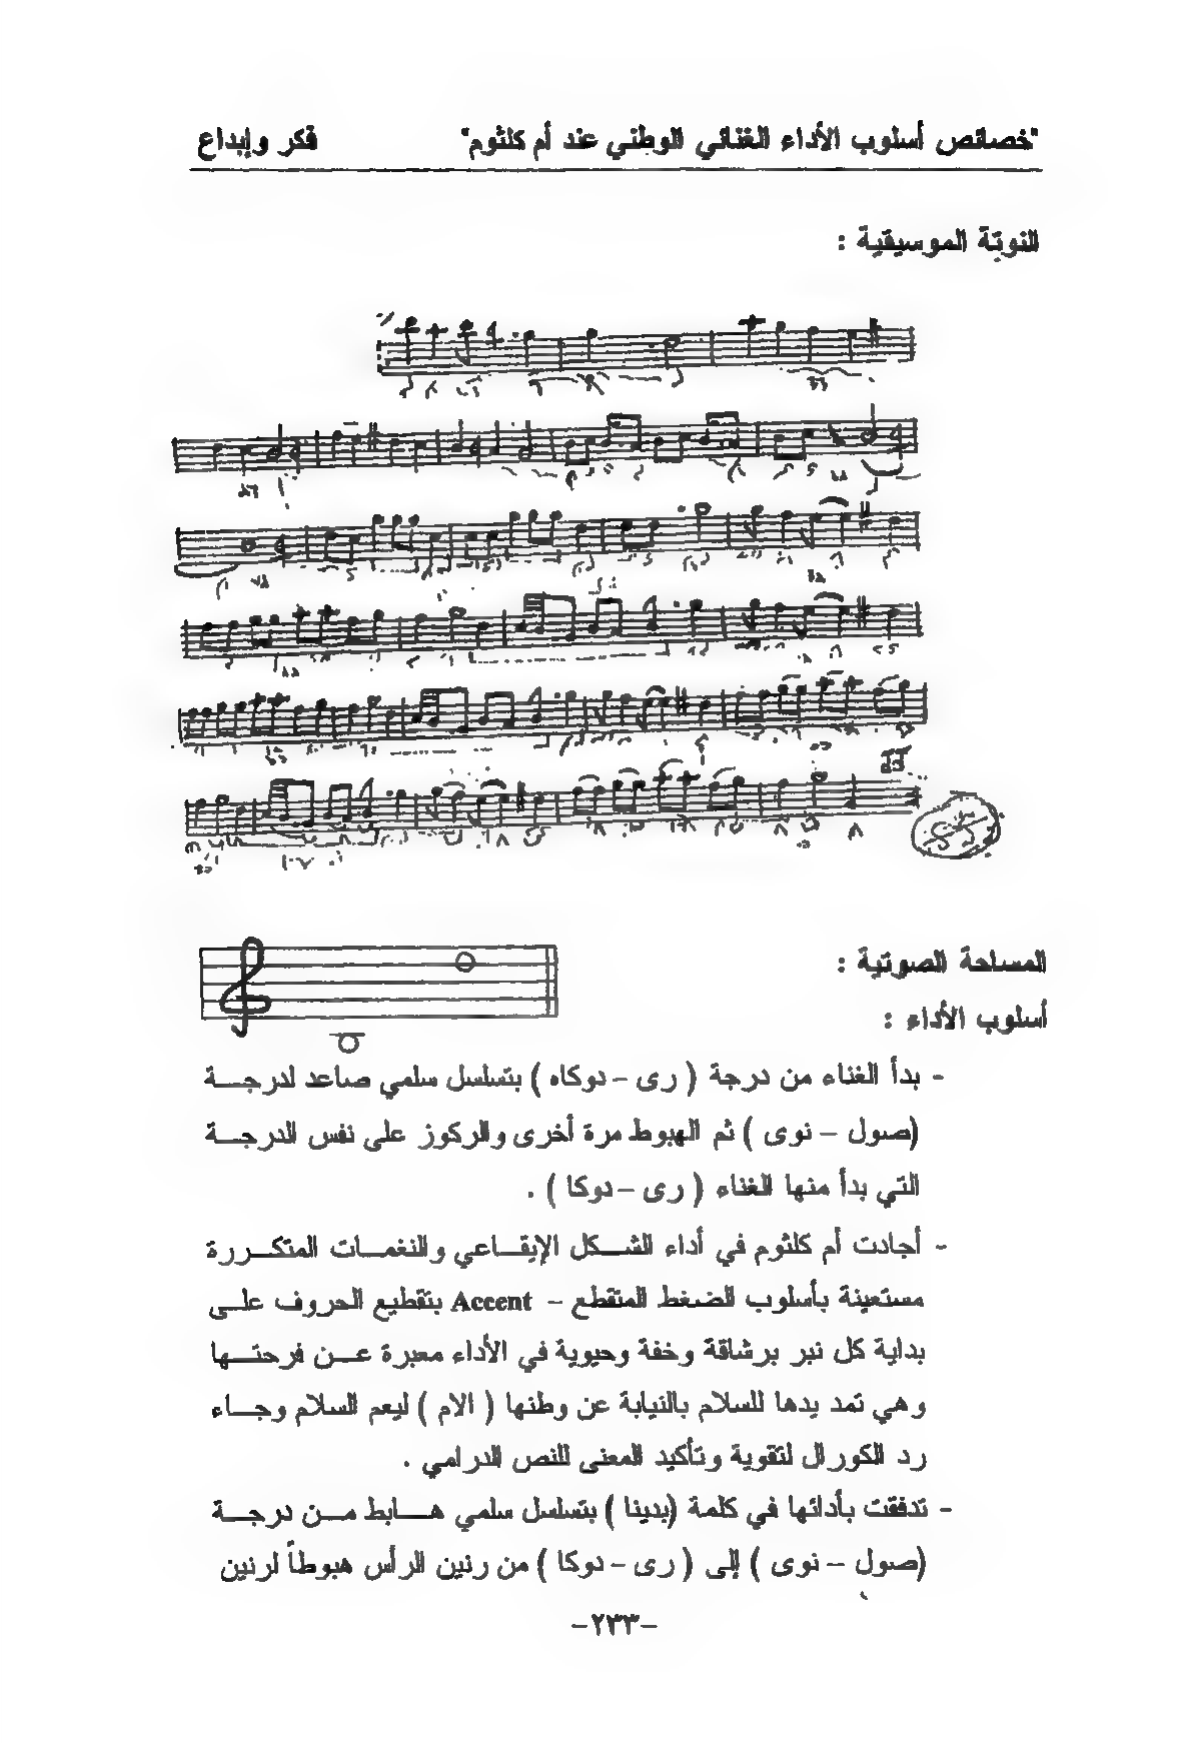 "خصائص أسلوب الأداء الغنائي الوطني عند أم كلثوم" فكر وإبداع
النوتة الموسيقية :
المساحة الصوتية :
أسلوب الأداء :
- بدأ الغناء من درجة ( رى – دوكاه ) بتسلسل سلمي صاعد لدرجة
(صول – نوى ) ثم الهبوط مرة أخرى والركوز على نفس الدرجة
التي بدأ منها الغناء ( رى – دوكا ) .
- أجادت أم كلثوم في أداء الشكل الإيقاعي والنغمات المتكررة
مستعينة بأسلوب الضغط المتقطع – Accent بتقطيع الحروف على
بداية كل نبر برشاقة وخفة وحيوية في الأداء معبرة عن فرحتها
وهي تمد يدها للسلام بالنيابة عن وطنها ( الام ) ليعم السلام وجاء
رد الكورال لتقوية وتأكيد المعنى للنص الدرامي .
- تدفقت بأدائها في كلمة (بدينا ) بتسلسل سلمي هابط من درجة
(صول – نوى ) إلى ( رى – دوكا ) من رنين الرأس هبوطاً لرنين
–٢٣٣–